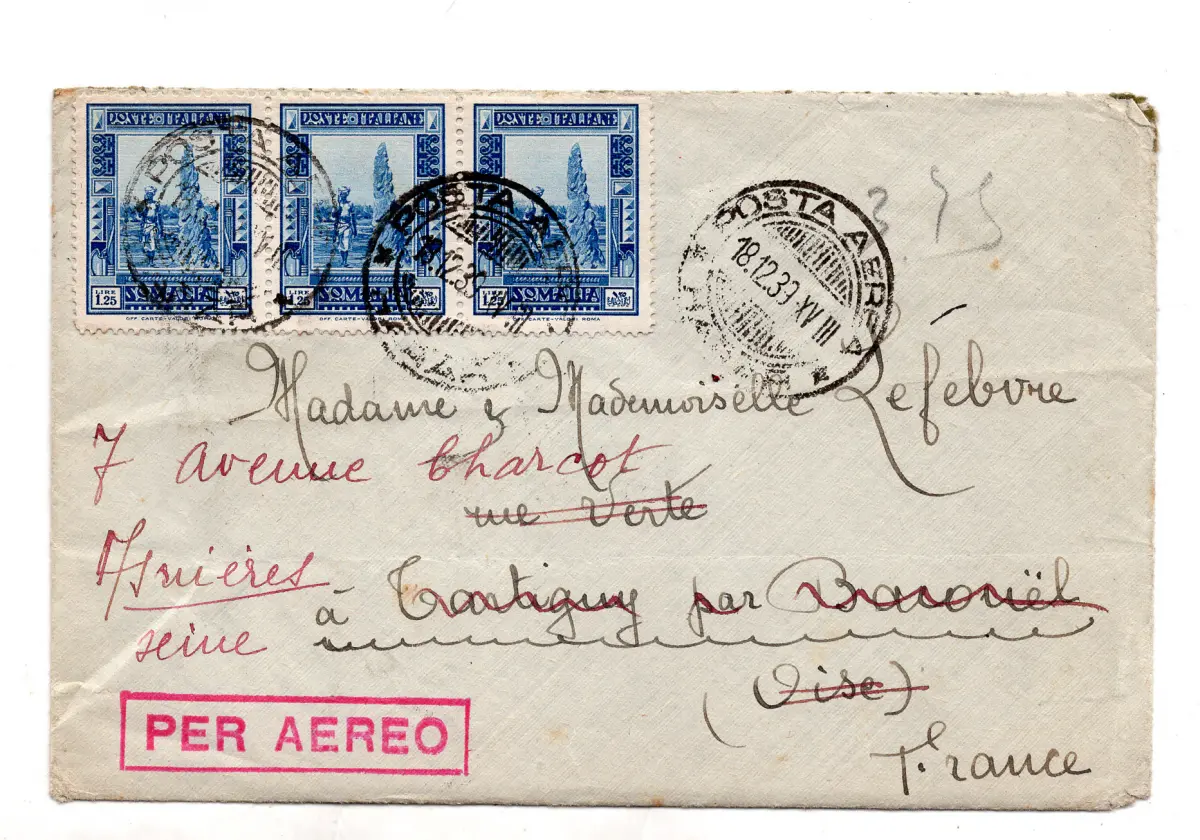 POSTE ITALIANE POSTE ITALIANE POSTE ITALIANE
LIRE 1.25 SOMALIA LIRE 1.25 SOMALIA LIRE 1.25 SOMALIA
OFF. CARTE-VALORI ROMA OFF. CARTE-VALORI ROMA OFF. CARTE-VALORI ROMA
POSTA
POSTA AEREA
POSTA AEREA
18.12.39 XVIII
3.75
Madame & Mademoiselle Lefébvre
7 avenue Charcot
rue Verte
Asnières
à Tartigny par Bacouël
seine
(Oise)
PER AEREO
France